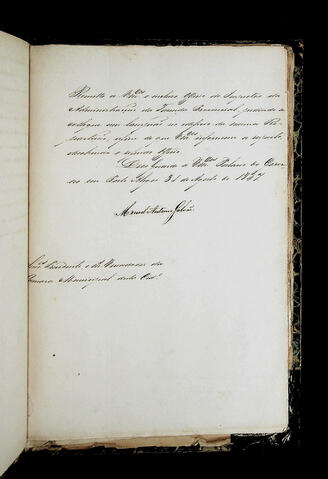 Remetto a V.mces o incluso Officio do Inspector da
Administração da Fazenda Provincial, pedindo a
do edificio da mesma
afim de que V.mces informem a respeito,
devolvendo o mesmo officio.
Deos Guarde a V.mces Palacio do Gover-
no em Porto Alegre 31 de Agosto de 1847
Manoel Antonio Galvão
Snr.es Presidente, e de Vereadores da
Camara Municipal desta Cid.e